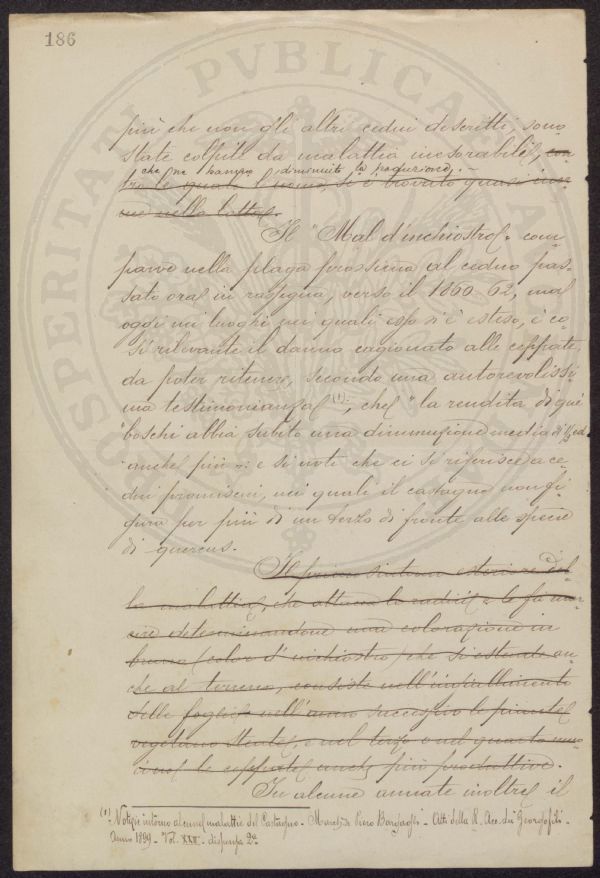 186
PROSPERITATI PVBLICAE
più che non gli altri cedui descritti, sono
state colpite da malattia inesorabile, con
che ne hanno diminuito la produzione. -
tro la quale l'uomo si è trovato quasi iner-
me nella lotta.
Il "Mal d'inchiostro" com-
parve nella plaga prossima al ceduo pas-
sato ora in rassegna, verso il 1860-62, ma
oggi nei luoghi nei quali esso si è esteso, è co-
sì rilevante il danno cagionato alle ceppate,
da poter ritenere, secondo una autorevolissi-
ma testimonianza (1); che "la rendita di quei
"boschi abbia subito una diminuzione media di 1/3 ed
anche più": e si noti che ci si riferisce a ce-
dui promiscui, nei quali il castagno non fi-
gura per più di un terzo di fronte alle specie
di quercus.
Il primo sintomo esteriore del-
la malattia, che attacca le radici e le fa mar-
cire determinandone una colorazione in
bruno (color d'inchiostro) che si estende an-
che al terreno, consiste nell'ingiallimento
delle foglie nell'anno successivo le piante
vegetano stente, e nel terzo o nel quarto muo-
iono le ceppate anche più produttive.
In alcune annate inoltre il
(1) Notizie intorno ad alcune malattie del Castagno - March. Piero Bargagli - Atti della R. Acc. dei Georgofili -
Anno 1899 - Vol. XXII - dispensa 2ª